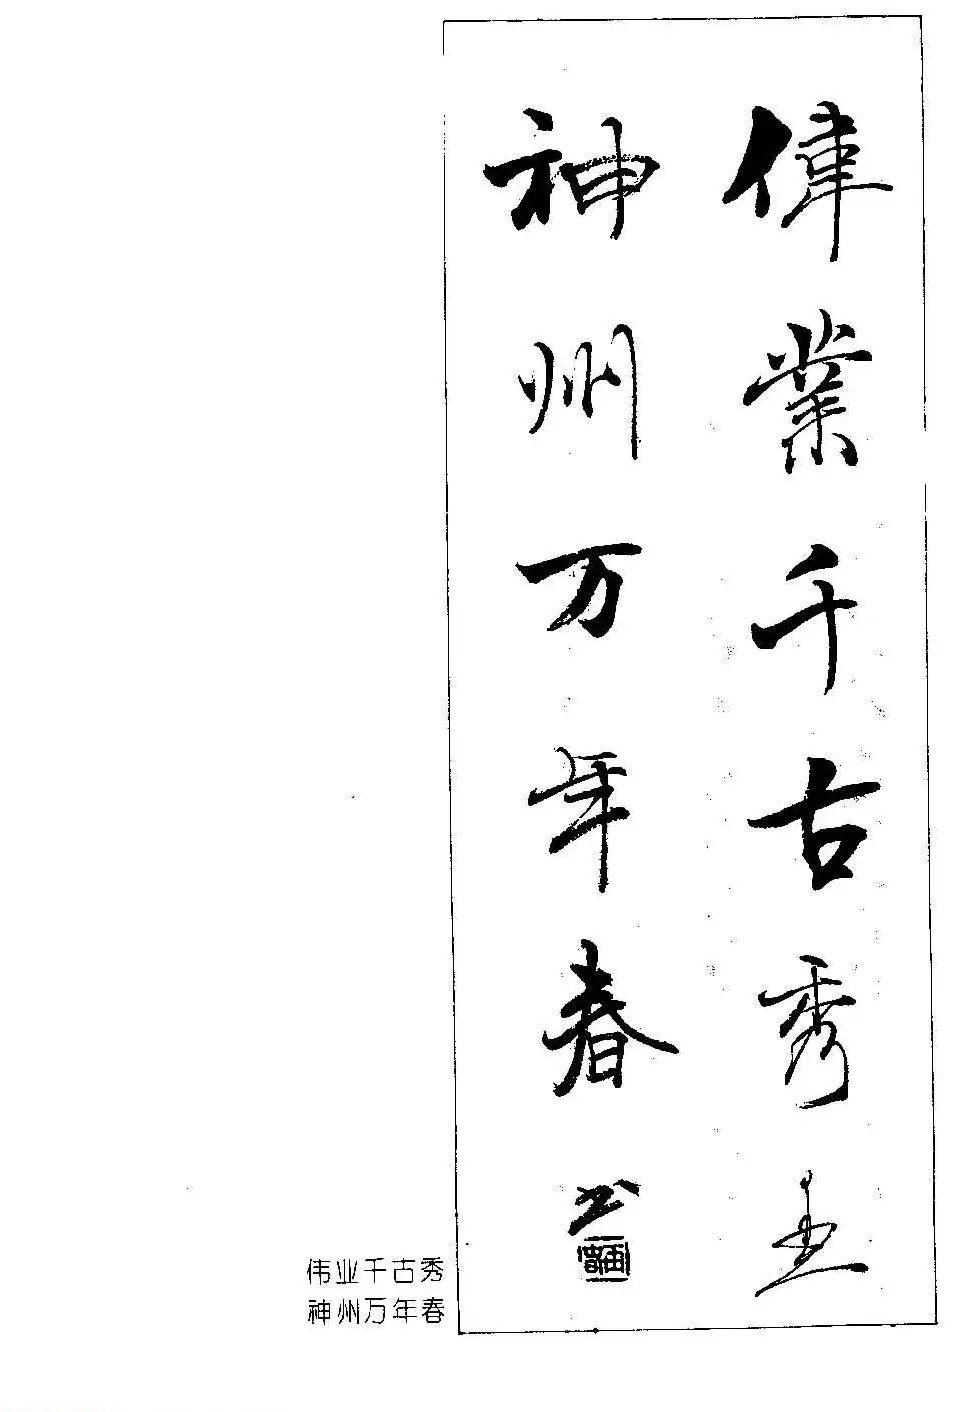 偉業千古秀
神州万年春
伟业千古秀
神州万年春